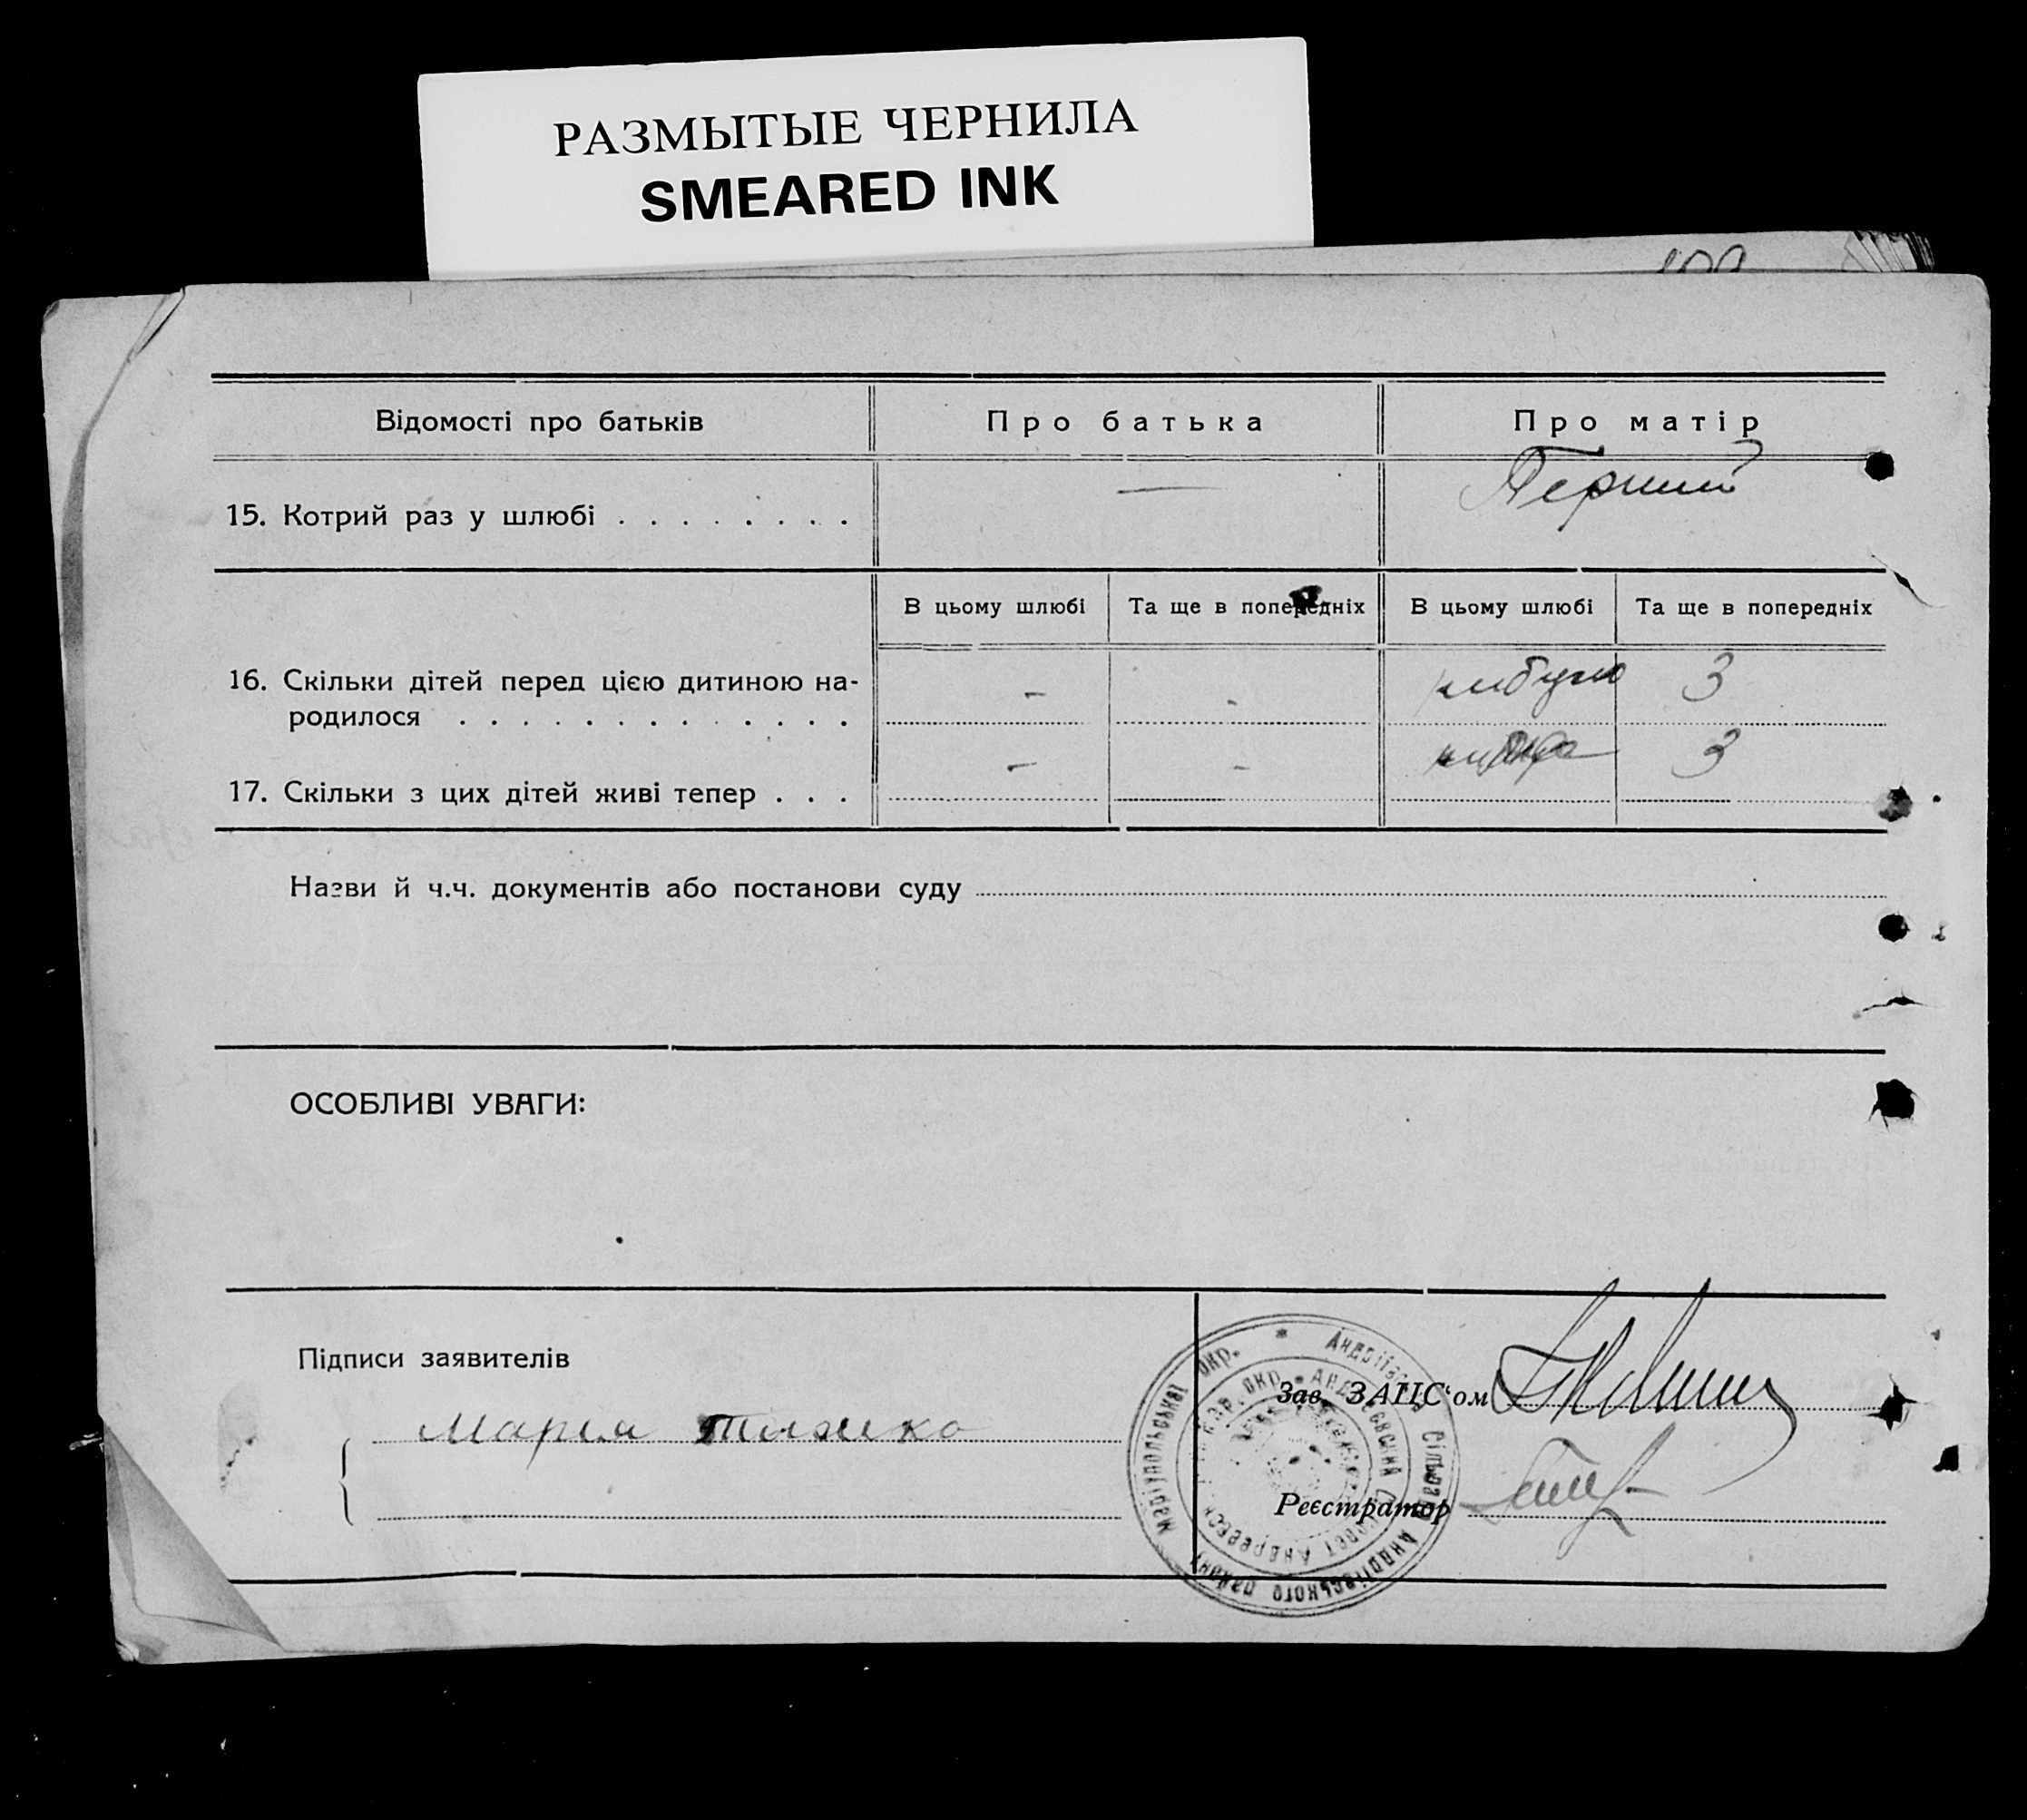 РАЗМЫТЫЕ ЧЕРНИЛА
SMEARED INK
Відомості про батьків
Про батька
Про матір
15. Котрий раз у шлюбі . . . . . . . .
—
Перший
В цьому шлюбі
Та ще в попередніх
В цьому шлюбі
Та ще в попередніх
16. Скільки дітей перед цією дитиною на-
родилося . . . . . . . . . . . . .
-
-
3
17. Скільки з цих дітей живі тепер . . .
-
-
3
Назви й ч.ч. документів або постанови суду
ОСОБЛИВІ УВАГИ:
Підписи заявителів
Зав. ЗАЦС‘ом
Мария
Реєстратор
Андріївська Сільрада Андріївського району Маріупольської окр.